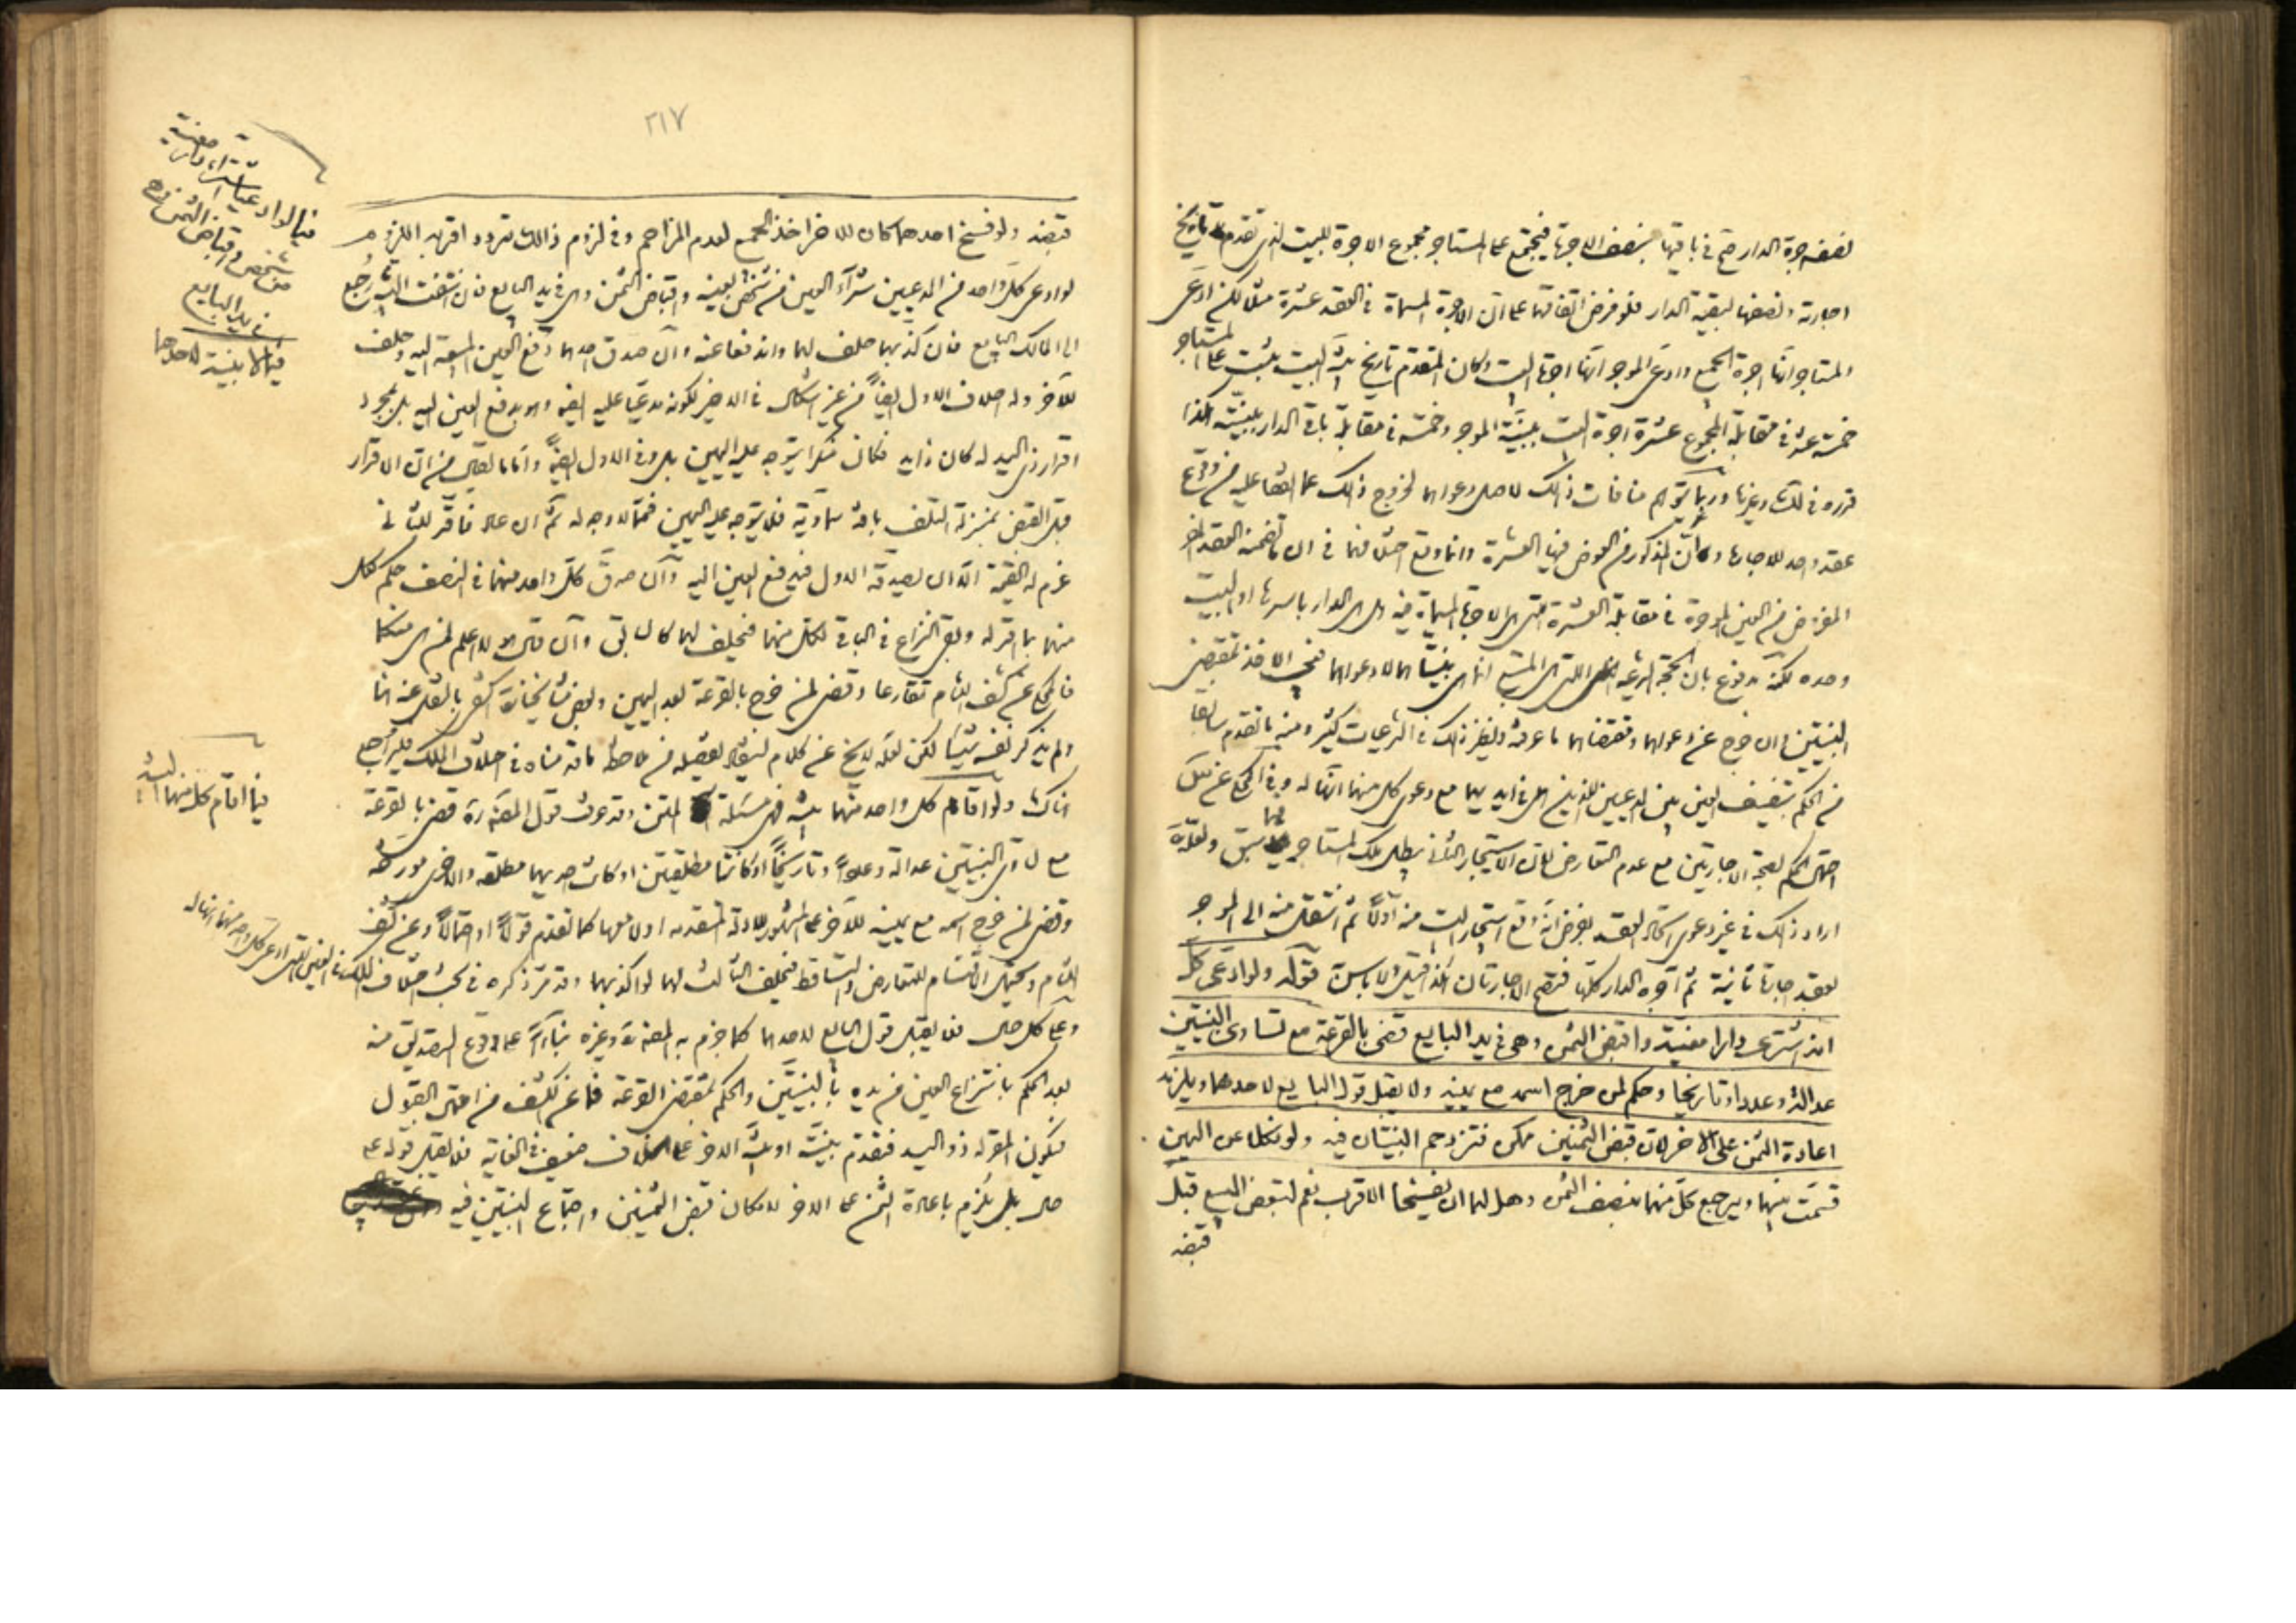 نصف اجرة الدار صح في باقيها بنصف الاجرة فيجتمع على المستاجر مجموع الاجرة للبيت الذي تقدم تاريخ
اجارته ونصفها لبقية الدار فلو فرض اتفاقهما على ان الاجرة المسماة في العقد عشرة مثلا لكن ادعى
المستاجر انها اجرة الجميع وادعى الموجر انها اجرة البيت وكان المتقدم تاريخ بينة البيت يثبت على المستاجر
خمسة عشر في مقابلة المجموع عشرة اجرة البيت ببينة الموجر وخمسة في مقابلة باقي الدار ببينته هكذا
قرره في لك وغيرها وربما يتوهم منافات ذلك لاصل دعواهما لخروج ذلك عما اتفقا عليه من وقوع
عقد واحد للاجارة وان المذكور من العوض فيها العشرة وانما وقع اختلافهما في ان ما تضمنه العقد
المفروض من العين الموجرة في مقابلة العشرة التي هي الاجرة المسماة فيه هل هي الدار باسرها او البيت
وحده لكنه مدفوع بان الحجة الشرعية التي هي المتبع انما هي بينتاهما لا دعواهما فيجب الاخذ بمقتضى
البينتين وان خرج عن دعواهما ومقتضاهما ما عرفت ونظير ذلك في الشرعيات كثير ومنه ما تقدم سابقا
من الحكم بتنصيف العين بين المدعيين اللذين هي في ايديهما مع دعوى كل منهما انها له وفي المحكي عن
احتمال الحكم بصحة الاجارتين مع عدم التعارض لان الاستيجار الثاني يبطل ملك المستاجر فيما سبق ولعله
اراد ذلك في غير دعوى اتحاد العقد بفرض انه وقع استيجار البيت منه اولا ثم انتقل منه الى الموجر
بعقد اجارة ثانية ثم آجره الدار كلها فتصح الاجارتان كذا قيل ولا باس به قوله ولو ادعى كل
انه اشترى دارا معينة واقبض الثمن وهي في يد البايع قضي بالقرعة مع تساوي البينتين
عدالة وعددا وتاريخا وحكم لمن خرج اسمه مع يمينه ولا يقبل قول البايع لاحدهما ويلزمه
اعادة الثمن على الاخر لان قبض الثمنين ممكن فتزدحم البينتان فيه ولو نكلا عن اليمين
قسمت بينهما ويرجع كل منهما بنصف الثمن وهل لهما ان يفسخا الاقرب نعم لتبعض المبيع قبل
قبضه
٢١٧
قبضه ولو فسخ احدهما كان للاخر اخذ الجميع لعدم المزاحم وفي لزوم ذلك تردد اقربه اللزوم
لو ادعى كل واحد من المدعيين شراء العين من شخص بعينه واقباض الثمن وهي في يد البايع فان انتفت البينة رجع
الى المالك البايع فان كذبهما حلف لهما واندفعا عنه وان صدق احدهما دفع العين المبيعة اليه وحلف
للآخر وله احلاف الاول ايضا من غير اشكال في الاخير لكونه مدعيا عليه ايضا وهو بدفع العين اليه بل بمجرد
اقرار ذي اليد له كان ذا يد فكان منكرا يتوجه عليه اليمين بل وفي الاول ايضا واما ما يقال من ان الاقرار
قبل القبض بمنزلة التلف بافة سماوية فلا يتوجه عليه اليمين فمما لا وجه له ثم ان عاد فاقر للثاني
غرم له القيمة الا ان يصدقه الاول فيدفع العين اليه وان صدق كل واحد منهما في النصف حكم لكل
منهما بما اقر له وبقي النزاع في الباقي لكل منهما فيحلف لهما كما سبق وان قال لا اعلم لمن هي منكما
فالمحكي عن كشف اللثام تقارعا وقضي لمن خرج بالقرعة بعد اليمين وبعض مشايخنا اكتفى بالنقل عنه
ولم يذكر نفسه شيئا لكن لعله لا يخ عن كلام ليس تفصيله من ملاحظة ما قدمناه في اختلاف الملك فليراجع
هناك ولو اقام كل واحد منهما بينة فهي مسئلة المتن وقد عرفت قول المص قده قضي بالقرعة
مع تساوي البينتين عدالة وعددا وتاريخا او كانتا مطلقتين او كانت احديهما مطلقة والاخرى مورخة
وقضي لمن خرج اسمه مع يمينه للآخر على المشهور للادلة المتقدمة او لا معها كما تقدم قولا او احتمالا وعن كشف
اللثام ويحتمل الاقتسام للتعارض والتساقط فيحلف البايع لهما لو اكذبهما وقد مر ذكره في بحث اختلاف الملك
وعلى كل حال فلا يقبل قول البايع لاحدهما كما جزم به المص قده وغيره بناء على وقوع التصديق منه
بعد الحكم بانتزاع العين من يده بالبينتين والحكم بمقتضى القرعة فما عن الكشف من احتمال القبول
فيكون المقر له ذو اليد فتقدم بينته او بينة الاخر على الخلاف ضعيف في الغاية فلا يقبل قوله على
حال بل يلزم باعادة الثمن على الاخر لامكان قبض الثمنين واجتماع البينتين فيه
فيما لو ادعيا شراء دار معينة
واقباض الثمن وهي
من شخص
في يد البايع
فيما لا بينة لاحدهما
فيما اقام كل منهما البينة
في العين التي ادعى كل واحد منهما انها له